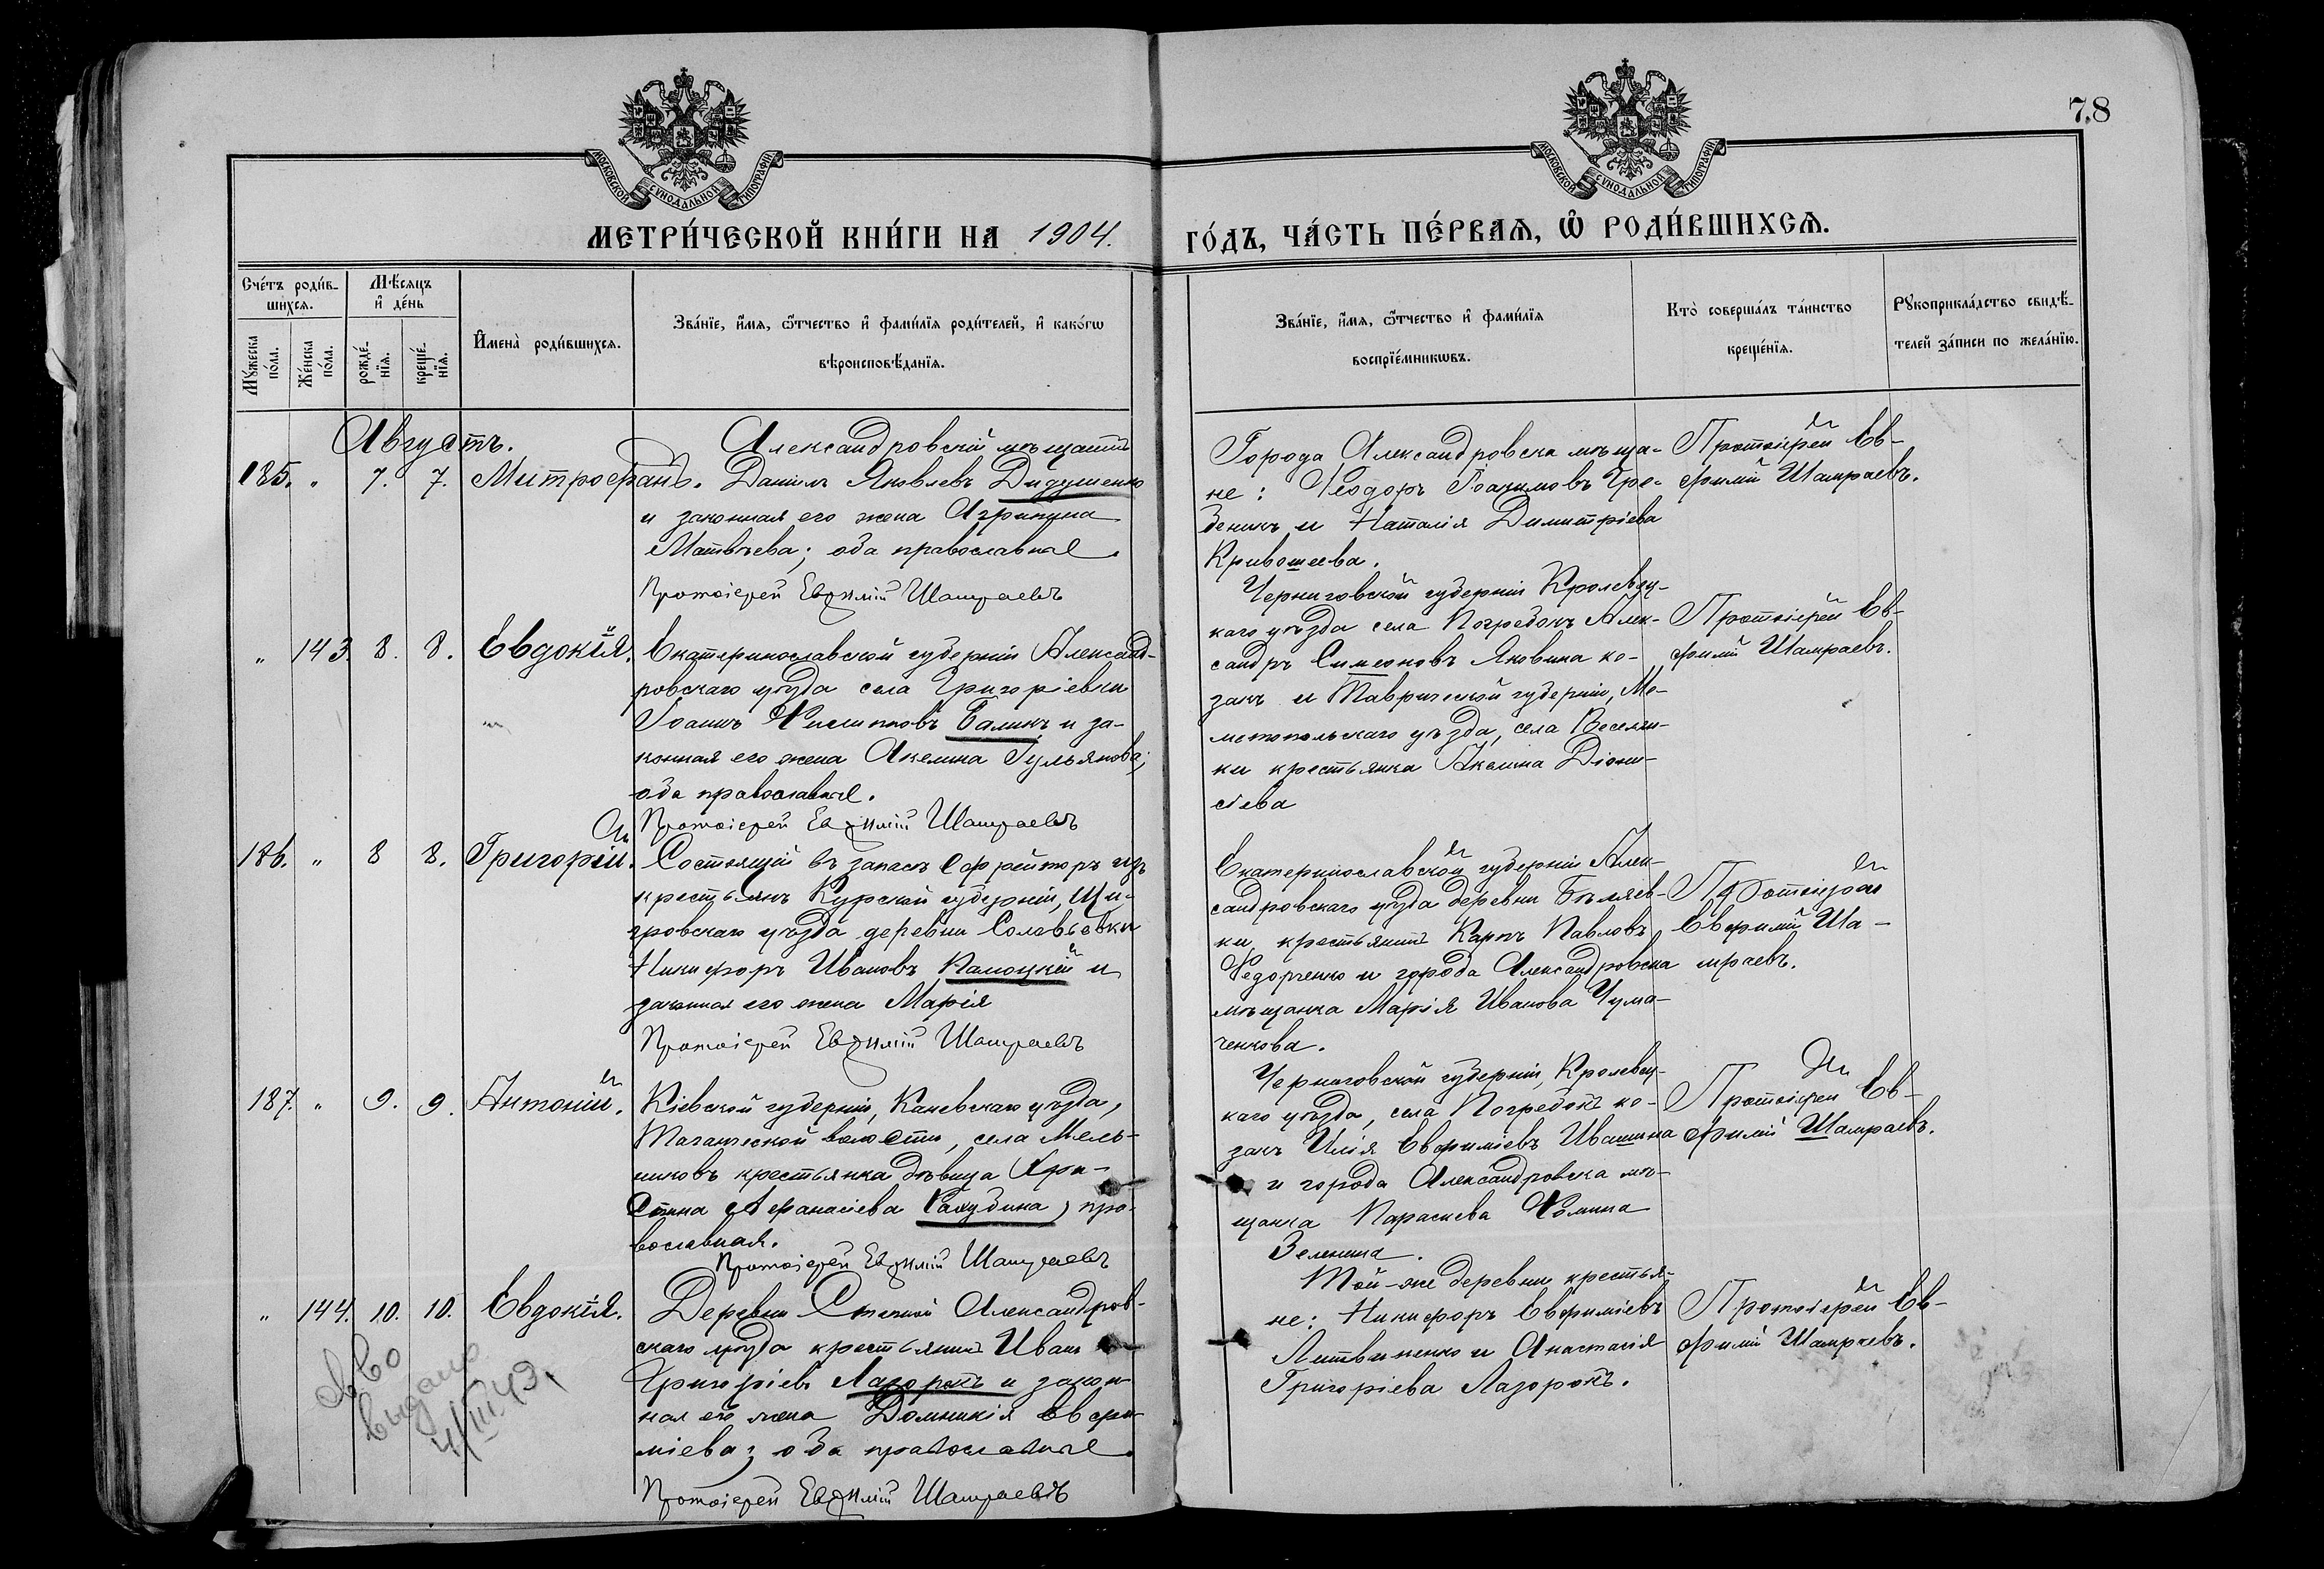 78
МОСКОВСКОЙ СУНОДАЛЬНОЙ ТИПОГРАФІИ
МОСКОВСКОЙ СУНОДАЛЬНОЙ ТИПОГРАФІИ
МЕТРИ́ЧЕСКОЙ КНИ́ГИ НА 1904. ГО́ДЪ, ЧА́СТЬ ПЕ́РВАѦ, Ѡ҆ РОДИ́ВШИХСѦ.
Сче́тъ роди́в-
шихсѧ.
Мꙋжеска по́ла.
Же́нска по́ла.
Мѣ́сѧцъ
и҆ де́нь
рожде́-
нїѧ.
креще́-
нїѧ.
И҆мена̀ роди́вшихсѧ.
Зва́нїе, и҆́мѧ, ѻ҆́тчество и҆ фами́лїѧ роди́телей, и҆ како́гѡ
вѣроисповѣ́данїѧ.
Зва́нїе, и҆́мѧ, ѻ҆́тчество и҆ фами́лїѧ
воспрїе́мникѡвъ.
Кто̀ соверша́лъ та́инство
креще́нїѧ.
Рꙋкоприкла́дство свидѣ́-
телей за́писи по жела́нїю.
Августъ.
185. " 7. 7. Митрофанъ.
Александровскій мѣщанинъ
Даніилъ Яковлевъ Дидушенко
и законная его жена Агрипина
Матвѣева; оба православные.
Протоіерей Евфимій Шамраевъ
Города Александровска мѣща-
не: Феодоръ Іоакимовъ Гре-
беникъ и Наталія Димитріева
Кривошеева.
Протоіерей Ев-
фимій Шамраевъ.
" 143. 8. 8. Евдокія.
Екатеринославской губерніи Александ-
ровскаго уѣзда села Григорьевки
Іоаннъ Филипповъ Балинъ и за-
конная его жена Акелина Гульянова;
оба православные.
Протоіерей Евфимій Шамраевъ
Черниговской губерніи Кролевец-
каго уѣзда села Погребокъ Алек-
сандръ Симеоновъ Яковина ко-
закъ и Таврической губерніи, Ме-
литопольскаго уѣзда, села Веселян-
ки крестьянка Акелина Діони-
сіева
Протоіерей Ев-
фимій Шамраевъ.
186. " 8 8. Григорій.
Состоящій въ запасѣ Ефрейторъ изъ
крестьянъ Курской губерніи, Щи-
гровскаго уѣзда деревни Соловьевки
Никифоръ Ивановъ и
законная его жена Марія
Протоіерей Евфимій Шамраевъ
Екатеринославской губерніи Алек-
сандровскаго уѣзда деревни Бѣляев-
ки, крестьянинъ Карпъ Павловъ
Федорченко и города Александровска
мѣщанка Марія Иванова Чума-
ченкова.
Протоіерей
Евфимій Ша-
мраевъ.
187. " 9. 9. Антоній.
Кіевской губерніи, Каневскаго уѣзда,
Таганческой волости, села Мель-
никовъ крестьянка дѣвица Хри-
стина Афанасіева, пра-
вославная.
Протоіерей Евфимій Шамраевъ
Черниговской губерніи, Кролевец-
каго уѣзда, села Погребокъ ко-
закъ Илія Евфиміевъ Ивашина
и города Александровска мѣ-
щанка Параскева Фомина
Зеленина.
Протоіерей Ев-
фимій Шамраевъ.
" 144. 10. 10. Евдокія.
Деревни Степной Александров-
скаго уѣзда крестьянинъ Иванъ
Григоріевъ Лазоркъ и закон-
ная его жена Домникія Евфи-
міева; оба православные.
Протоіерей Евфимій Шамраевъ
Той-же деревни крестья-
не: Никифоръ Евфиміевъ
Литвиненко и Анастасія
Григоріева Лазорокъ.
Протоіерей Ев-
фимій Шамраевъ.
св-во
выдано
4/III 43.